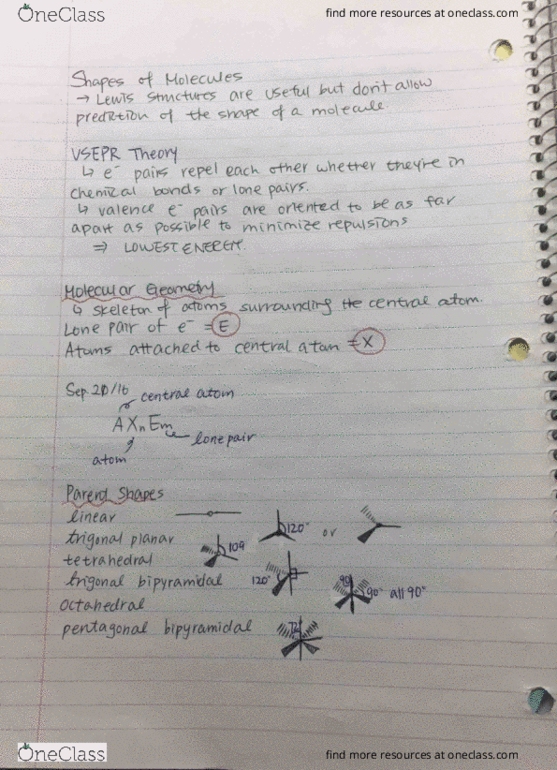 OneClass
find more resources at oneclass.com
Shapes of Molecules
→ Lewis structures are useful but don't allow
prediction of the shape of a molecule
VSEPR Theory
↳ e⁻ pairs repel each other whether they're in
chemical bonds or lone pairs.
↳ valence e⁻ pairs are oriented to be as far
apart as possible to minimize repulsions
⇒ LOWEST ENERGY.
Molecular Geometry
↳ skeleton of atoms surrounding the central atom.
Lone pair of e⁻ = E
Atoms attached to central atom = X
Sep 20/16
central atom
AXnEm
lone pair
atom
Parent Shapes
linear
trigonal planar 120° or
tetrahedral 109
trigonal bipyramidal 120° 90 90° all 90°
octahedral
pentagonal bipyramidal 72
OneClass
find more resources at oneclass.com